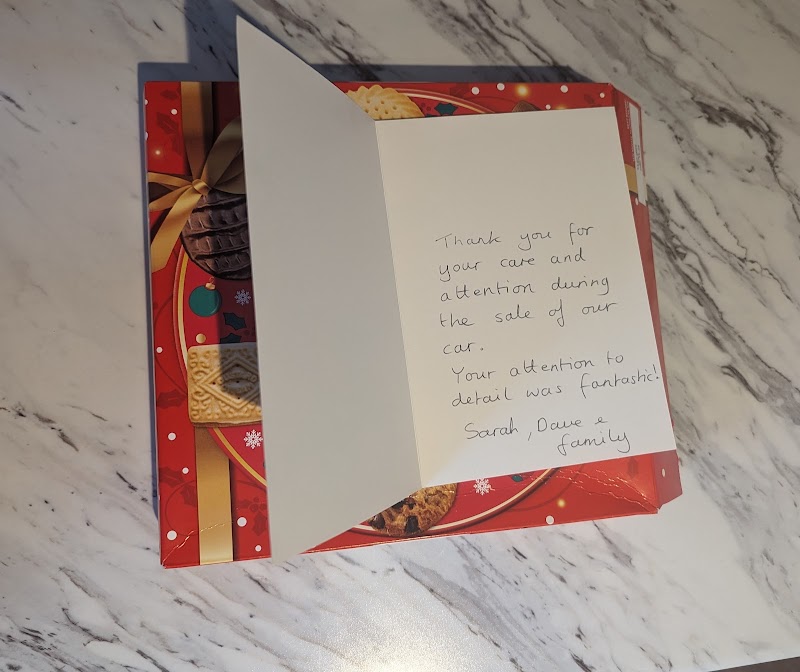 Thank you for
your care and
attention during
the sale of our
car.
Your attention to
detail was fantastic!
Sarah, Dave &
family